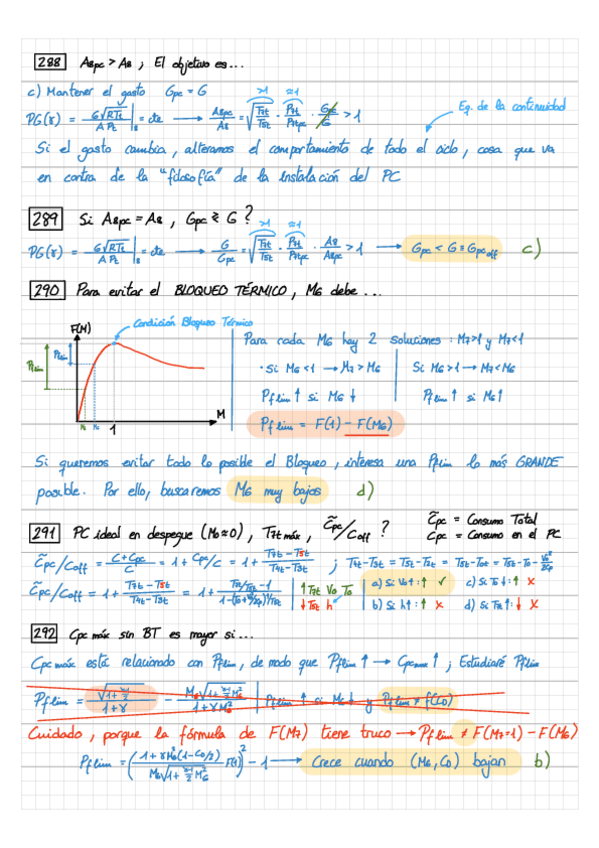 288 A8pc > A8 ; El objetivo es...
c) Mantener el gasto Gpc = G
PG(γ) = G√RTt / A Pt |8 = cte → A8pc/A8 = √(T7t/T5t) · P5t/P7tpc · Gpc/G > 1
>1 ≈1
Eq. de la continuidad
Si el gasto cambia, alteramos el comportamiento de todo el ciclo, cosa que va
en contra de la "filosofía" de la instalación del PC
289 Si A8pc = A8, Gpc ≷ G?
PG(γ) = G√RTt / A Pt |8 = cte → G/Gpc = √(T7t/T5t) · P5t/P7t · A8/A8 > 1 → Gpc < G ≡ Gpcoff c)
>1 ≈1
290 Para evitar el BLOQUEO TÉRMICO, M6 debe...
F(M) Condición Bloqueo Térmico
M
1
Para cada M6 hay 2 soluciones: M7>1 y M7<1
· Si M6<1 → M7>M6 Si M6>1 → M7<M6
Pflim ↑ si M6 ↓ Pflim ↑ si M6 ↑
Pflim = F(1) - F(M6)
Si queremos evitar todo lo posible el Bloqueo, interesa una Pflim lo más GRANDE
posible. Por ello, buscaremos M6 muy bajos d)
291 PC ideal en despegue (M0≈0), T7t máx, C̃pc/Coff ? C̃pc = Consumo Total
Cpc = Consumo en el PC
C̃pc/Coff = C+Cpc / C = 1 + Cpc/C = 1 + T7t-T5t / T4t-T3t ; T4t-T3t = T5t-T2t = T5t-T0t = T5t-T0-V0²/2Cp
C̃pc/Coff = 1 + T7t-T5t / T4t-T3t = 1 +
↑T7t V0 T0
↓T5t h
a) Si V0↑: ↑ ✓ c) Si T0↓: ↑ x
b) Si h↑: ↑ x
292 Cpc máx sin BT es mayor si...
Cpc máx está relacionado con Pflim, de modo que Pflim ↑ → Cpcmax ↑ ; Estudiaré Pflim
Pflim = √(1+γ-1/2) / 1+γ - M6√(1+γ-1/2 M6²) / 1+γM6² | Pflim ↑ si M6 ↓ y Pflim ≠ f(CD)
Cuidado, porque la fórmula de F(M7) tiene truco → Pflim ≠ F(M7=1) - F(M6)
Pflim = (1+γM6²(1-CD/2) / M6√(1+γ-1/2 M6²) F(1))² - 1 → Crece cuando (M6, CD) bajan b)